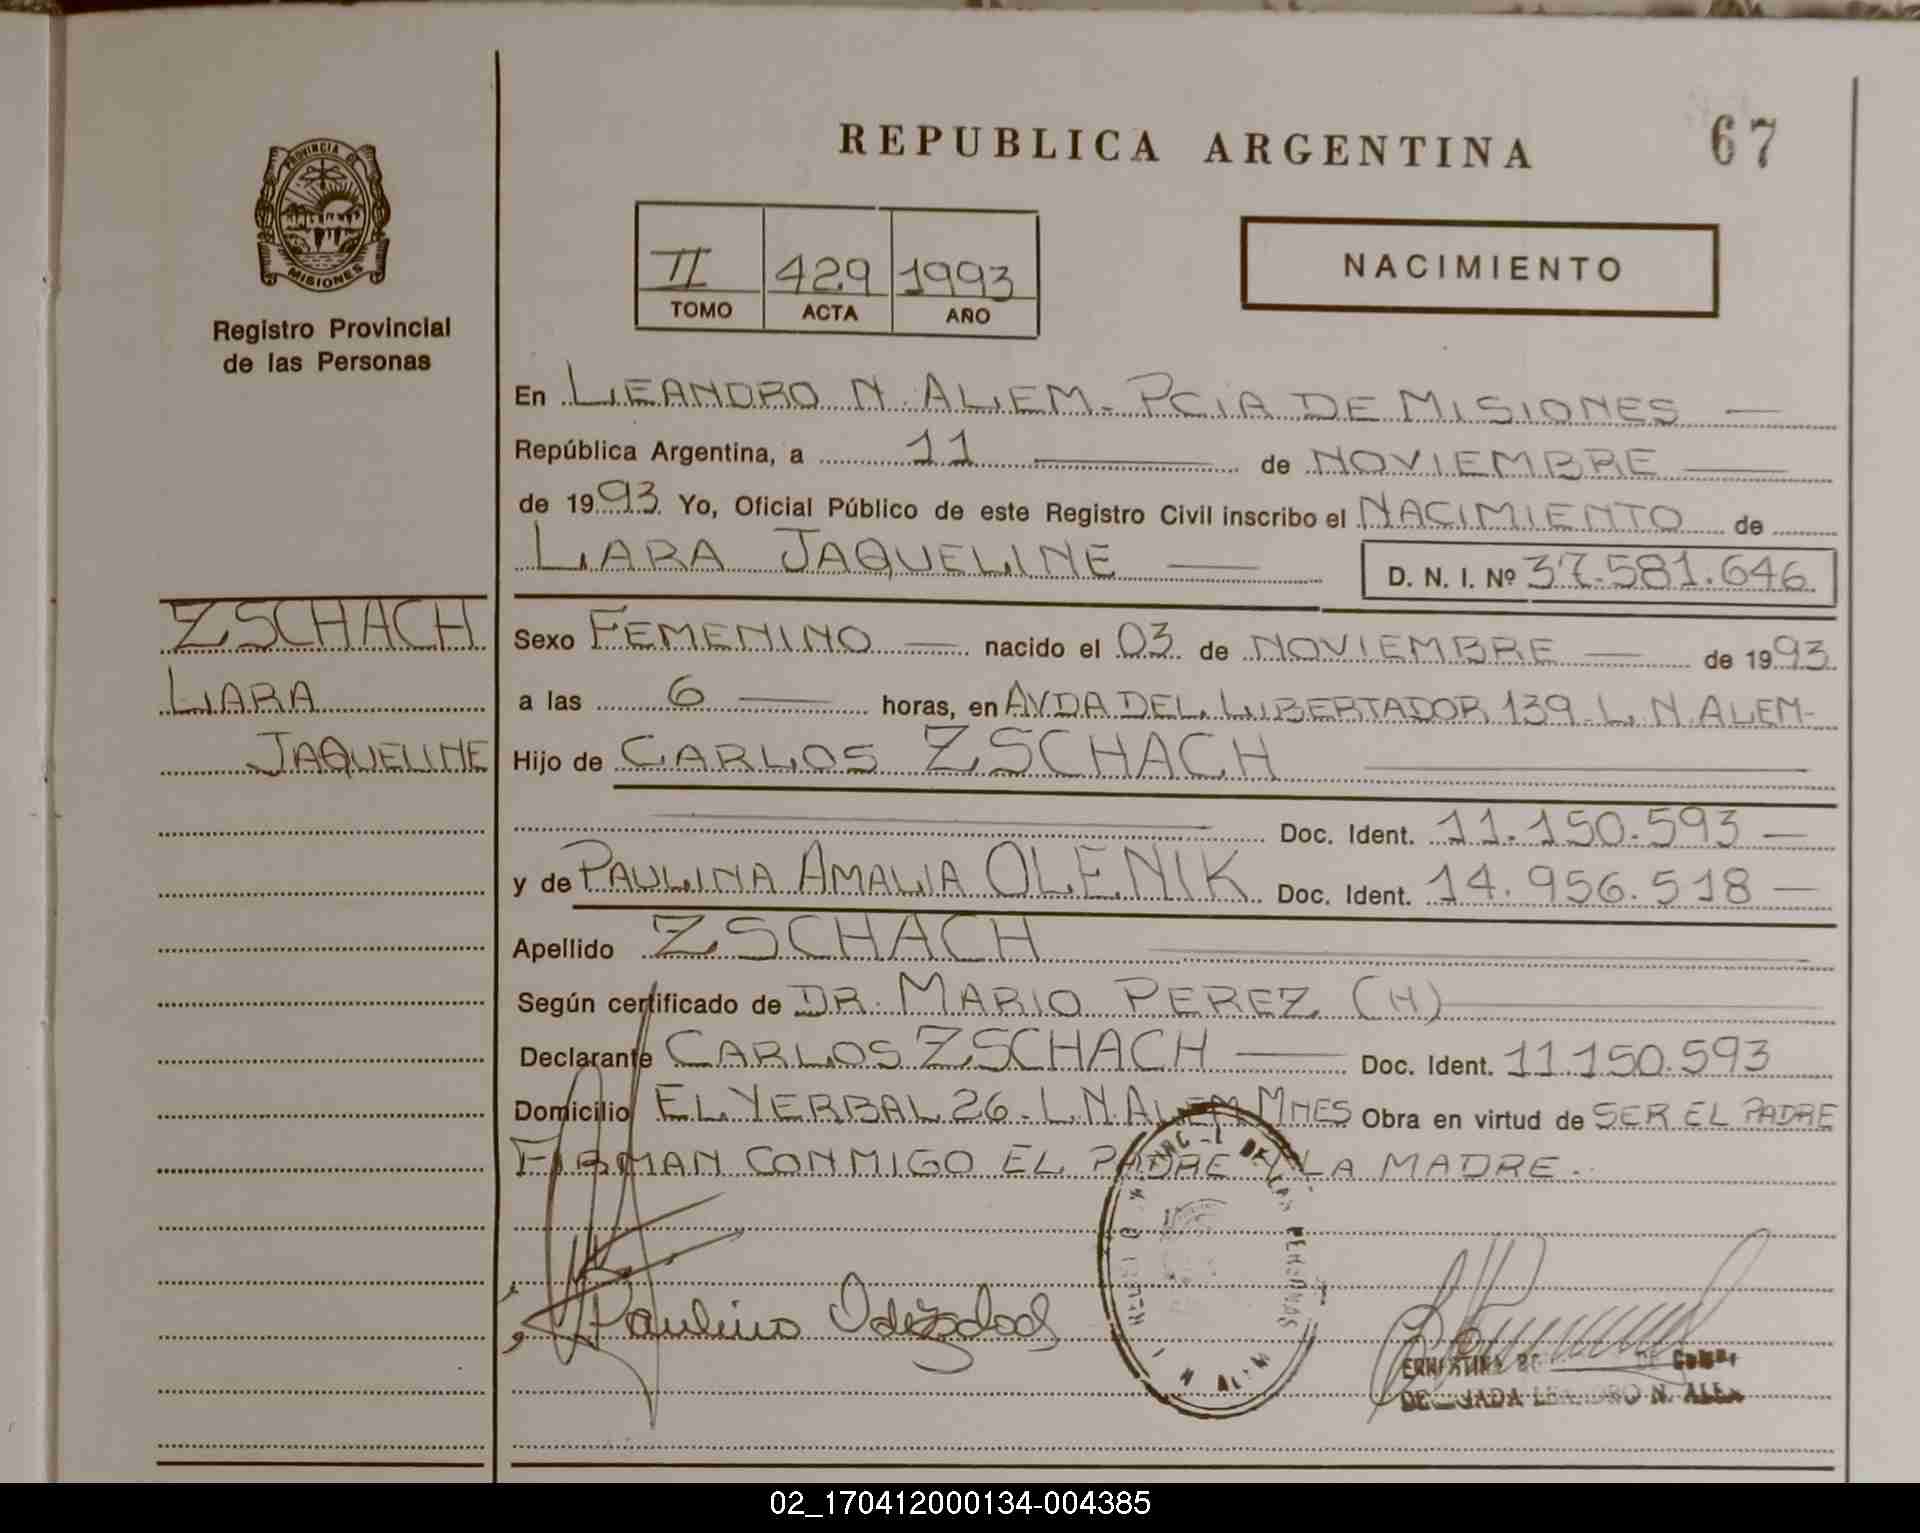 REPUBLICA ARGENTINA
67
PROVINCIA DE
MISIONES
Registro Provincial
de las Personas
II 429 1993
TOMO ACTA AÑO
NACIMIENTO
En LEANDRO N. ALEM - PCIA DE MISIONES
República Argentina, a 11 de NOVIEMBRE
de 1993 Yo, Oficial Público de este Registro Civil inscribo el NACIMIENTO de
LARA JAQUELINE D. N. I. Nº 37.581.646
ZSCHACH
LARA
JAQUELINE
Sexo FEMENINO nacido el 03 de NOVIEMBRE de 1993
a las 6 horas, en AVDA DEL LIBERTADOR 139 - L. N. ALEM-
Hijo de CARLOS ZSCHACH
Doc. Ident. 11.150.593
y de PAULINA AMALIA OLENIK Doc. Ident. 14.956.518
Apellido ZSCHACH
Según certificado de DR. MARIO PEREZ (H)
Declarante CARLOS ZSCHACH Doc. Ident. 11.150.593
Domicilio EL YERBAL 26 - L. N. ALEM MNES Obra en virtud de SER EL PADRE
FIRMAN CONMIGO EL PADRE Y LA MADRE.
DE LAS PERSONAS
ALEM
LEANDRO N. ALEM
02_170412000134-004385